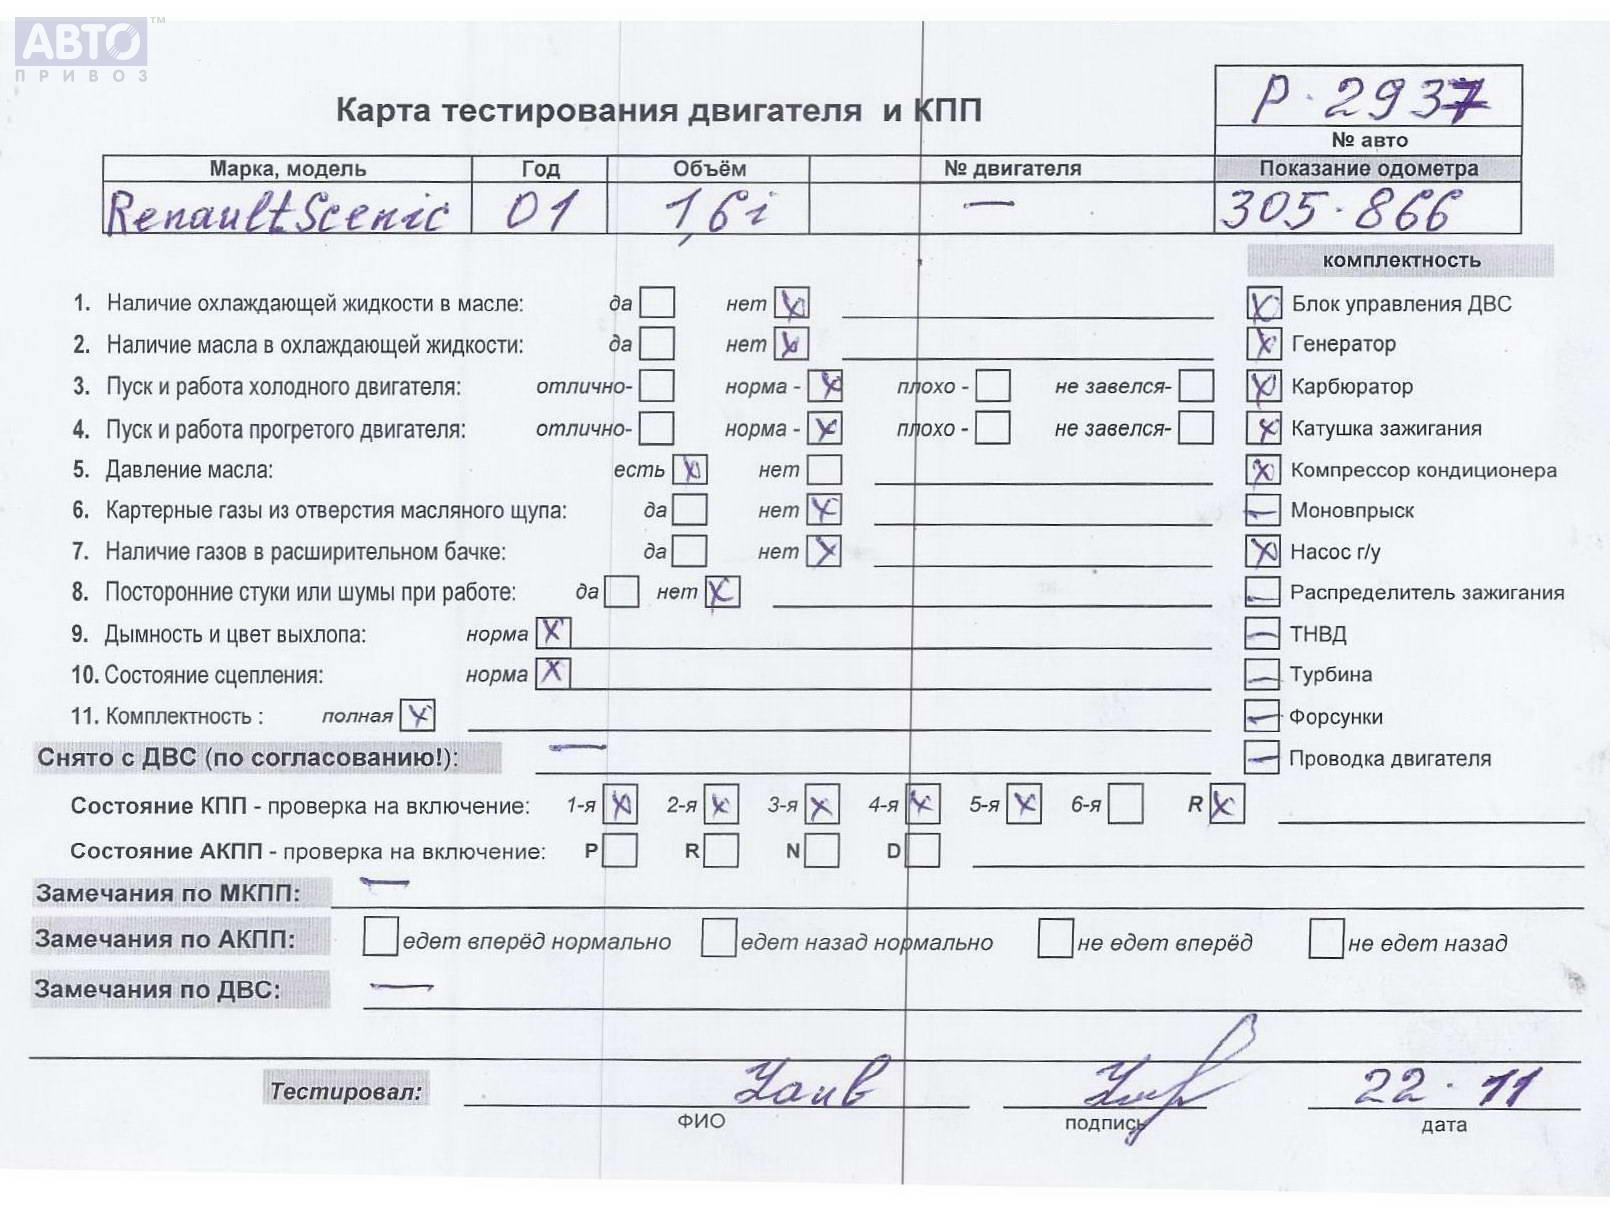 АВТО™
ПРИВОЗ
Карта тестирования двигателя и КПП
Р·2937
№ авто
Марка, модель Год Объём № двигателя Показание одометра
Renault Scenic 01 1,6i — 305·866
комплектность
1. Наличие охлаждающей жидкости в масле: да нет x x Блок управления ДВС
2. Наличие масла в охлаждающей жидкости: да нет x x Генератор
3. Пуск и работа холодного двигателя: отлично- норма - x плохо - не завелся- x Карбюратор
4. Пуск и работа прогретого двигателя: отлично- норма - x плохо - не завелся- x Катушка зажигания
5. Давление масла: есть x нет x Компрессор кондиционера
6. Картерные газы из отверстия масляного щупа: да нет x — Моновпрыск
7. Наличие газов в расширительном бачке: да нет x x Насос г/у
8. Посторонние стуки или шумы при работе: да нет x — Распределитель зажигания
9. Дымность и цвет выхлопа: норма x — ТНВД
10. Состояние сцепления: норма x — Турбина
11. Комплектность : полная x — Форсунки
Снято с ДВС (по согласованию!): — — Проводка двигателя
Состояние КПП - проверка на включение: 1-я x 2-я x 3-я x 4-я x 5-я x 6-я R x
Состояние АКПП - проверка на включение: P R N D
Замечания по МКПП: —
Замечания по АКПП: едет вперёд нормально едет назад нормально не едет вперёд не едет назад
Замечания по ДВС: —
Тестировал: 22·11
ФИО подпись дата